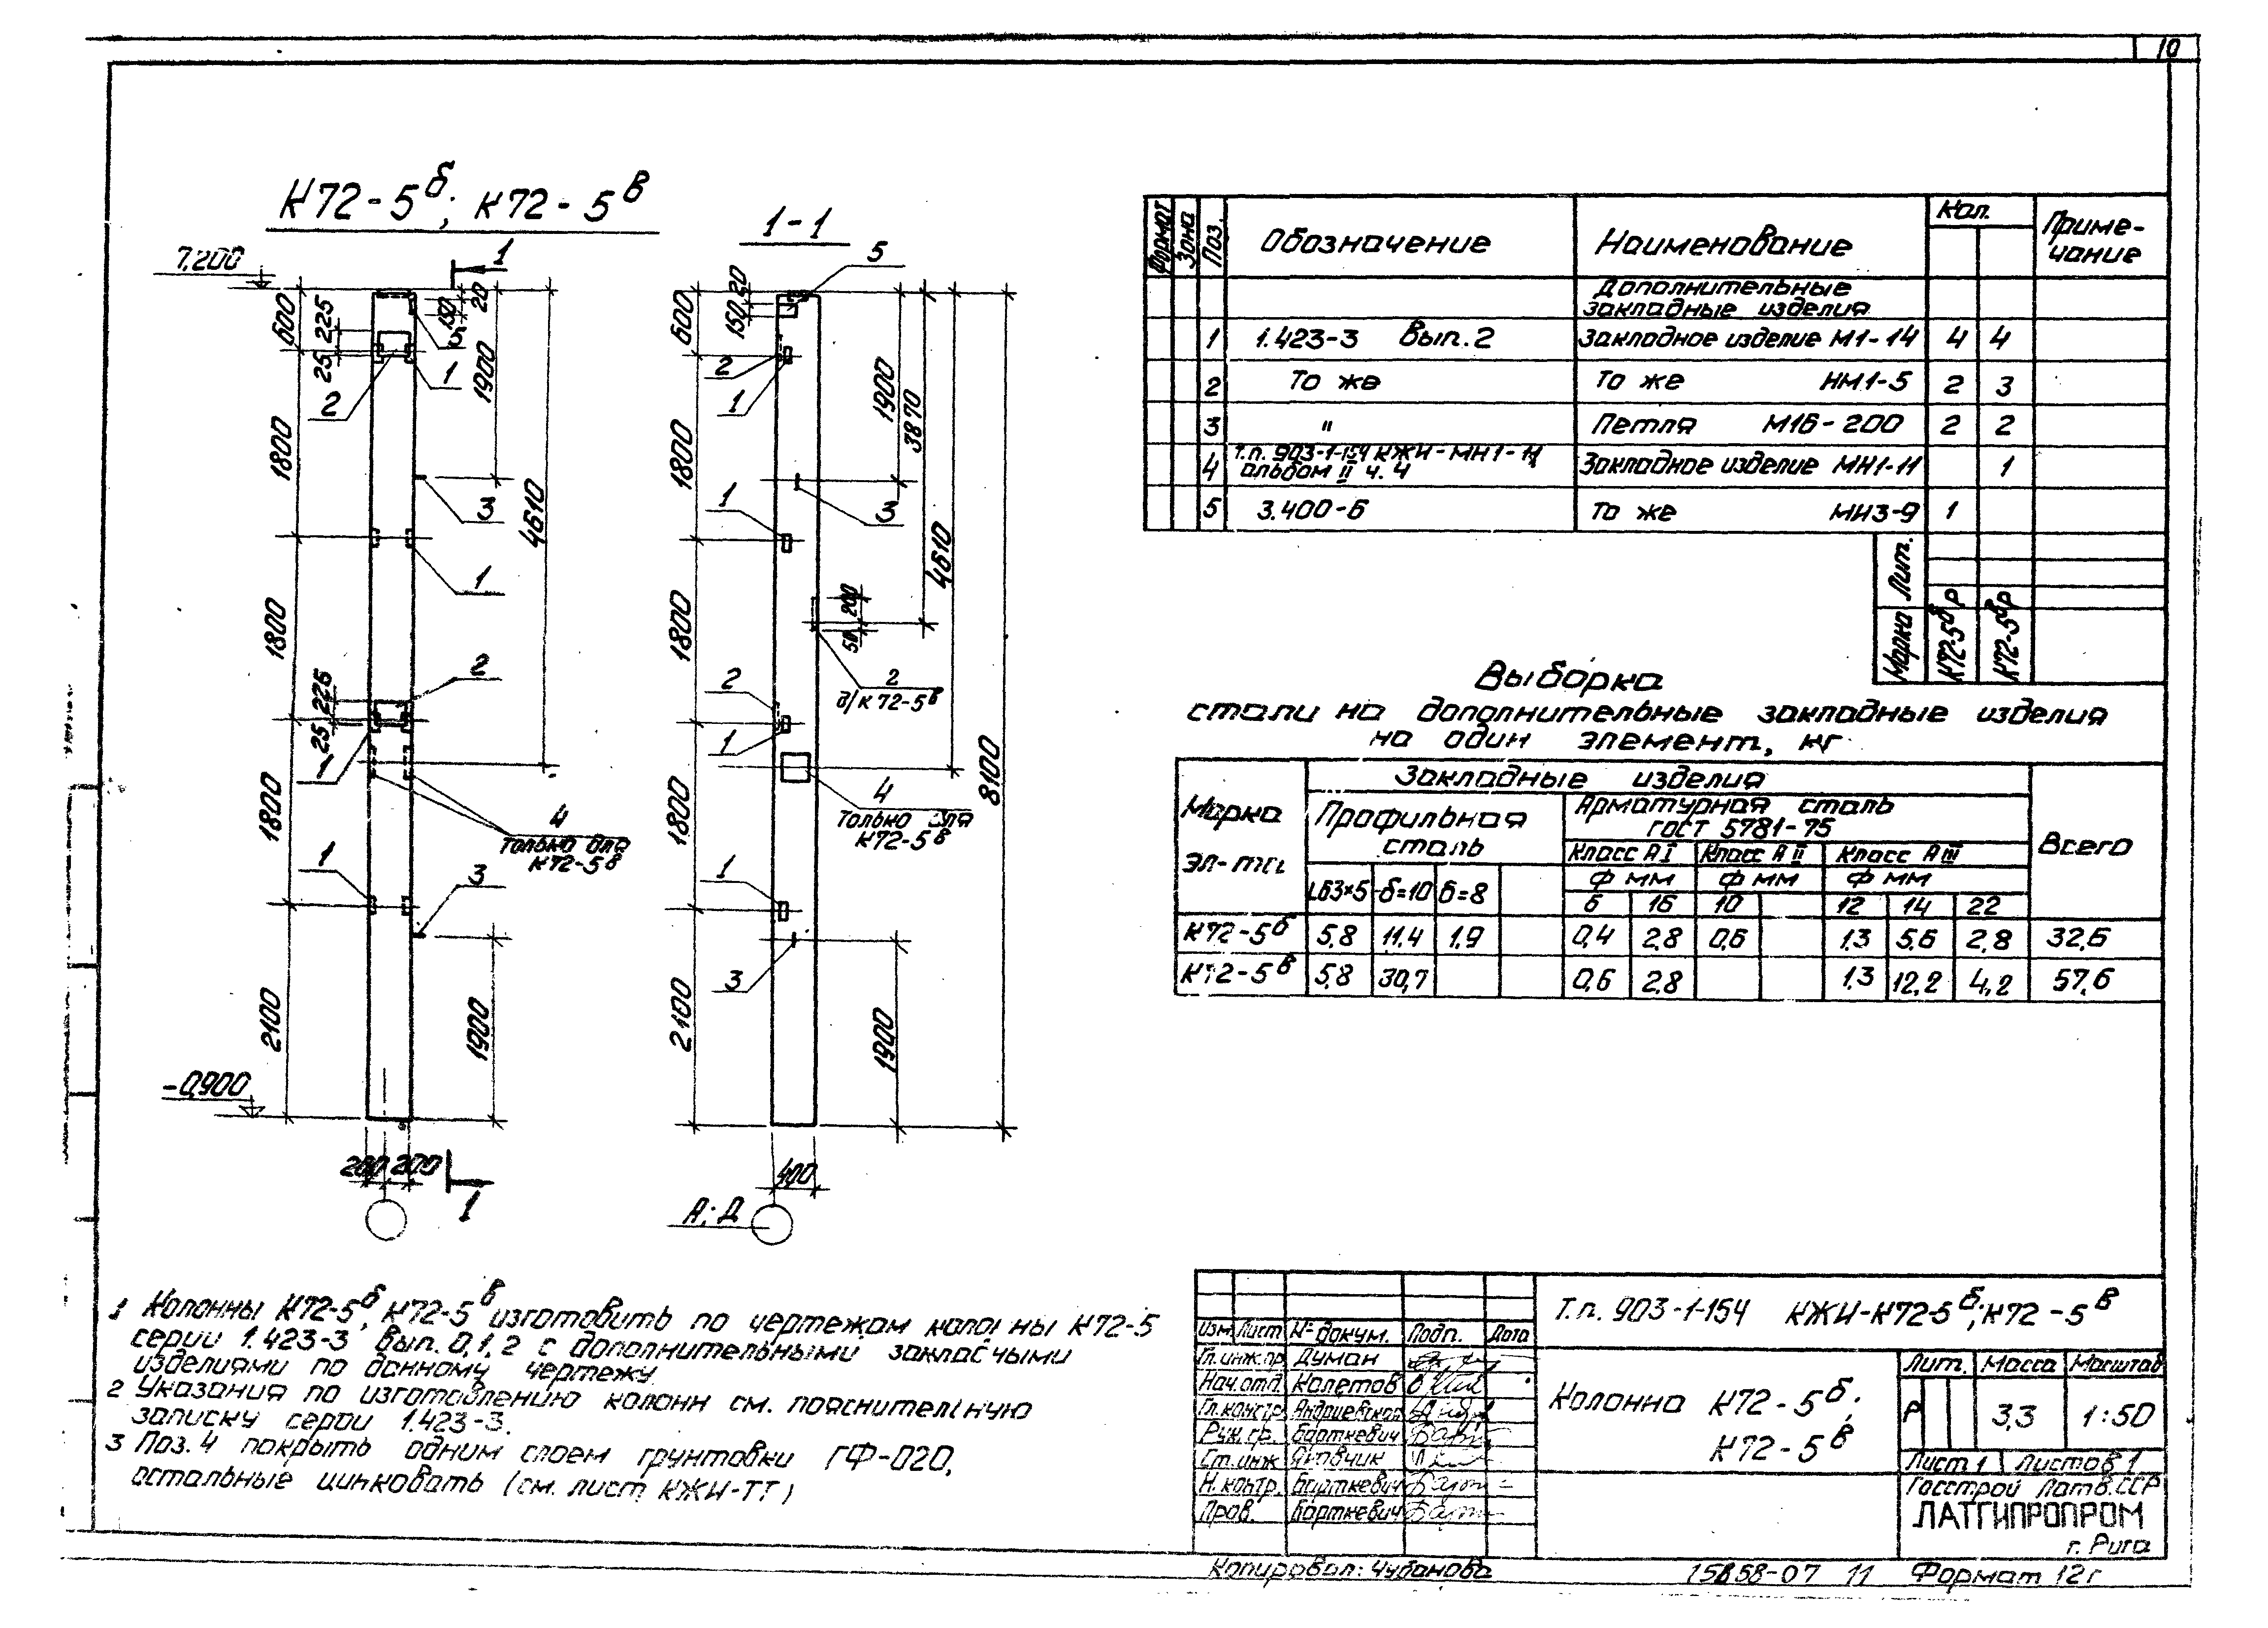 10
К72-5б; К72-5в
1-1
7,200
1
600
225
25
150
20
5
1
2
1900
1800
3
4610
1
1800
2
225
25
1
1800
4
Только для
К72-5в
1
3
2100
1900
-0,900
200 200
1
5
20
150
600
2
1
1900
3870
1800
1
3
4610
200
50
1800
2
д/К72-5в
2
1
8100
4
Только для
К72-5в
1800
1
3
2100
1900
400
А; Д
Формат Зона Поз. Обозначение Наименование Кол. Приме-
чание
Дополнительные
закладные изделия
1 1.423-3 Вып. 2 Закладное изделие М1-14 4 4
2 То же То же НМ1-5 2 3
3 " Петля М16-200 2 2
4 Т.п. 903-1-154 КЖИ-МН1-11 Закладное изделие МН1-11 1
альбом II ч. 4
5 3.400-6 То же МН3-9 1
Лит. Р Р
Марка К72-5б К72-5в
Выборка
стали на дополнительные закладные изделия
на один элемент, кг
Марка
эл-та
Закладные изделия
Профильная
сталь
Арматурная сталь
ГОСТ 5781-75
Всего
Класс АI Класс АII Класс АIII
Ф мм Ф мм Ф мм
L63×5 δ=10 δ=8 6 16 10 12 14 22
К72-5б 5,8 11,4 1,9 0,4 2,8 0,6 1,3 5,6 2,8 32,6
К72-5в 5,8 30,7 0,6 2,8 1,3 12,2 4,2 57,6
1 Колонны К72-5б, К72-5в изготовить по чертежам колонны К72-5
серии 1.423-3 вып. 0,1,2 с дополнительными закладными
изделиями по данному чертежу.
2 Указания по изготовлению колонн см. пояснительную
записку серии 1.423-3.
3 Поз. 4 покрыть одним слоем грунтовки ГФ-020,
остальные цинковать (см. лист КЖИ-ТТ)
Т.п. 903-1-154 КЖИ-К72-5б; К72-5в
Изм. Лист № докум. Подп. Дата
Гл. инж. пр. Думан
Нач. отд. Калетов
Гл. констр. Андриевская
Рук. гр. Барткевич
Ст. инж.
Н. контр. Барткевич
Пров. Барткевич
Колонна К72-5б;
К72-5в
Лит. Масса Масштаб
Р 3,3 1:50
Лист 1 Листов 1
Госстрой Латв.ССР
ЛАТГИПРОПРОМ
г. Рига
Копировал: Чубанова 15858-07 11 Формат 12г